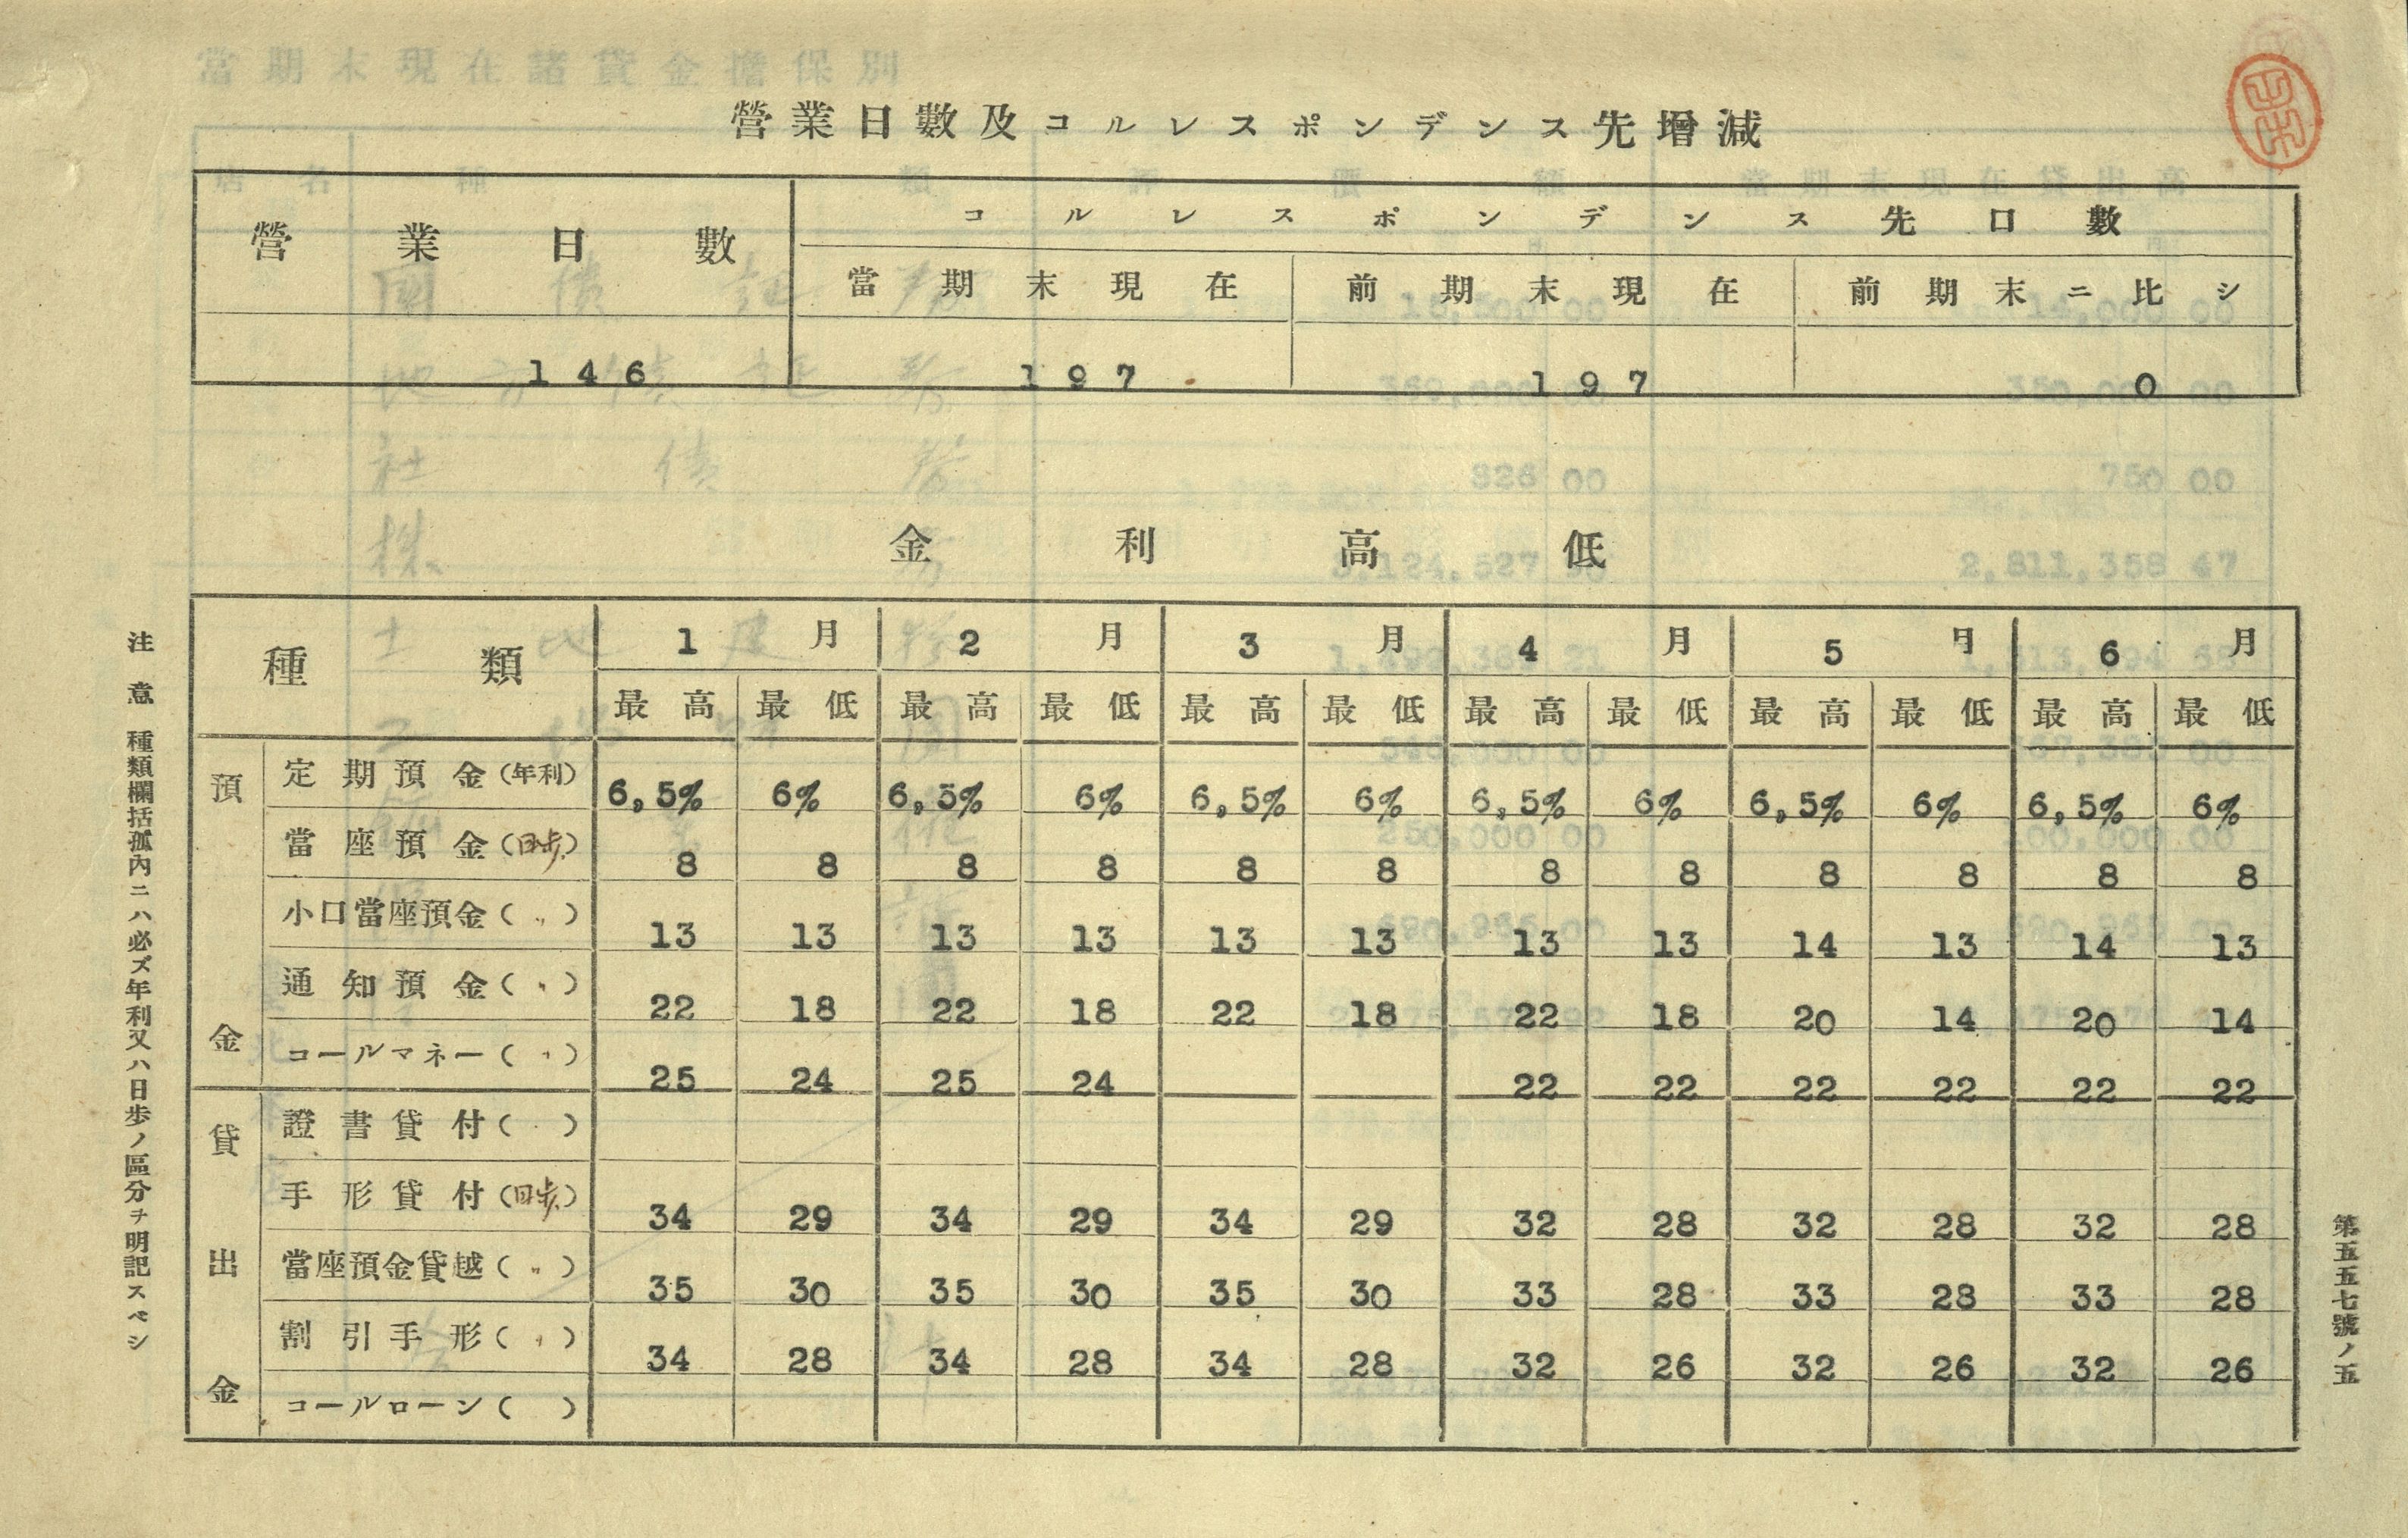 營業日數及コルレスポンデンス先增減
營業日數 コルレスポンデンス先口數
當期末現在 前期末現在 前期末ニ比シ
146 197 197 0
金利高低
種類 1月 2月 3月 4月 5月 6月
最高 最低 最高 最低 最高 最低 最高 最低 最高 最低 最高 最低
預金
定期預金(年利) 6,5% 6% 6,5% 6% 6,5% 6% 6,5% 6% 6,5% 6% 6,5% 6%
當座預金(日歩) 8 8 8 8 8 8 8 8 8 8 8 8
小口當座預金(〃) 13 13 13 13 13 13 13 13 14 13 14 13
通知預金(〃) 22 18 22 18 22 18 22 18 20 14 20 14
コールマネー(〃) 25 24 25 24 22 22 22 22 22 22
貸出金
證書貸付( )
手形貸付(日歩) 34 29 34 29 34 29 32 28 32 28 32 28
當座預金貸越(〃) 35 30 35 30 35 30 33 28 33 28 33 28
割引手形(〃) 34 28 34 28 34 28 32 26 32 26 32 26
コールローン( )
注意 種類欄括孤內ニハ必ズ年利又ハ日歩ノ區分ヲ明記スベシ
第五五七號ノ五